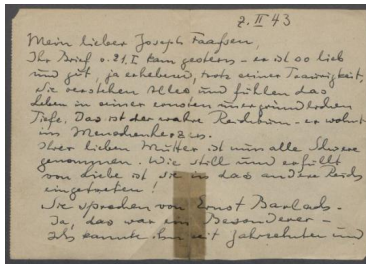 2. II 43
Mein lieber Joseph Faassen,
Ihr Brief v. 21. I kam gestern – er ist so lieb
und gut, ja erhebend, trotz seiner Traurigkeit,
Sie verstehen Alles und fühlen das
Leben in seiner ernsten unergründlichen
Tiefe. Das ist der wahre Reichtum – er wohnt
im Menschenherzen.
Ihrer lieben Mutter ist nun alle Schwere
genommen. Wie still und erfüllt
von Liebe ist sie in das andere Reich
eingetreten!
Sie sprechen von Ernst Barlach –
Ja, das war ein Besonderer –
Ich kannte ihn seit Jahrzehnten und